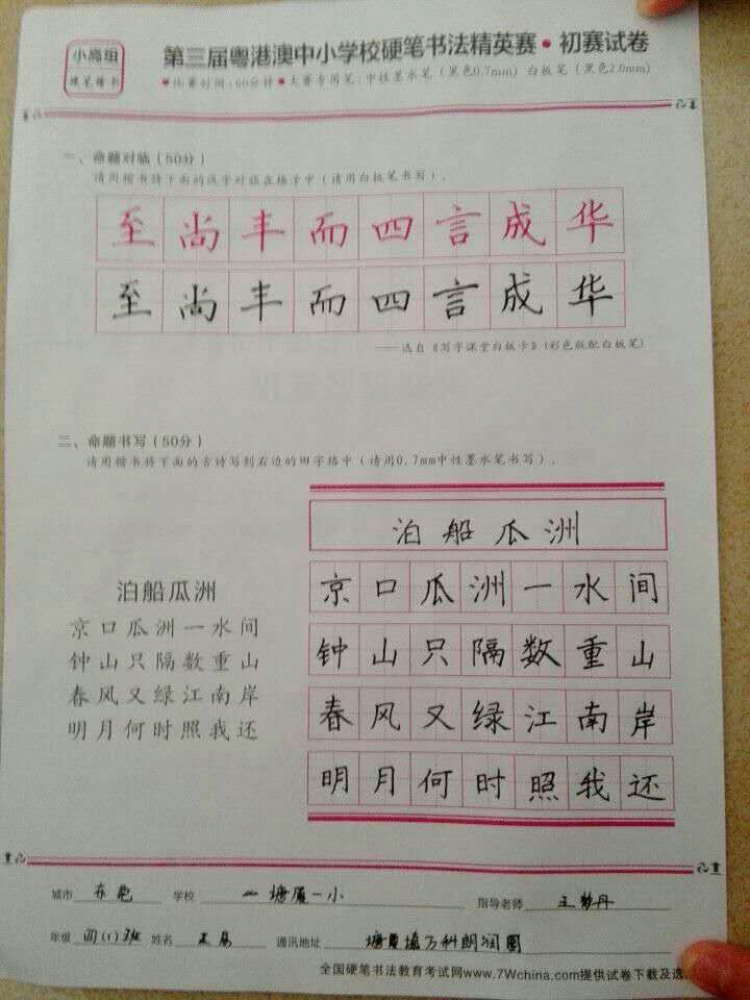 小高组
硬笔楷书
第三届粤港澳中小学校硬笔书法精英赛·初赛试卷
●比赛时间:60分钟●大赛专用笔:中性墨水笔(黑色0.7mm) 白板笔(黑色2.0mm)
一、命题对临(50分)
请用楷书将下面的汉字对临在格子中(请用白板笔书写)。
至尚丰而四言成华
至尚丰而四言成华
——选自《写字课堂白板卡》(彩色版配白板笔)
二、命题书写(50分)
请用楷书将下面的古诗写到右边的田字格中(请用0.7mm中性墨水笔书写)。
泊船瓜洲
京口瓜洲一水间
钟山只隔数重山
春风又绿江南岸
明月何时照我还
泊船瓜洲
京口瓜洲一水间
钟山只隔数重山
春风又绿江南岸
明月何时照我还
城市 东莞 学校 塘厦一小 指导老师 王梦丹
年级 四(1)班 姓名 王易 通讯地址 塘厦镇万科朗润园
全国硬笔书法教育考试网www.7Wchina.com提供试卷下载及选